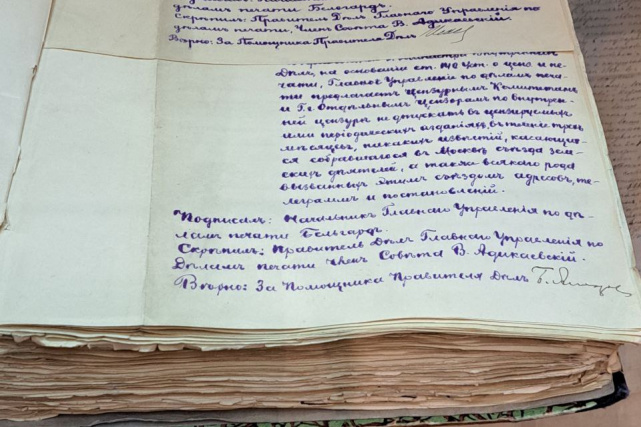 дѣламъ печати Бельгардъ.
Скрѣпилъ: Правитель Дѣлъ Главнаго Управленія по
дѣламъ печати, Членъ Совѣта В. Адикаевскій.
Вѣрно: За Помощника Правителя Дѣлъ
Дѣлъ, на основаніи ст. 140 Уст. о ценз. и пе-
чати, Главное Управленіе по дѣламъ печа-
ти предлагаетъ Цензурнымъ Комитетамъ
и Гг. Отдѣльнымъ Цензорамъ по внутрен-
ней цензурѣ не допускать въ цензируемыхъ
ими періодическихъ изданіяхъ, въ теченіе трехъ
мѣсяцевъ, никакихъ извѣстій, касающих-
ся собравшагося въ Москвѣ съѣзда зем-
скихъ дѣятелей, а также всякаго рода
вызванныхъ этимъ съѣздомъ адресовъ, те-
леграммъ и постановленій.
Подписалъ: Начальникъ Главнаго Управленія по дѣ-
ламъ печати Бельгардъ.
Скрѣпилъ: Правитель Дѣлъ Главнаго Управленія по
Дѣламъ печати Членъ Совѣта В. Адикаевскій.
Вѣрно: За Помощника Правителя Дѣлъ